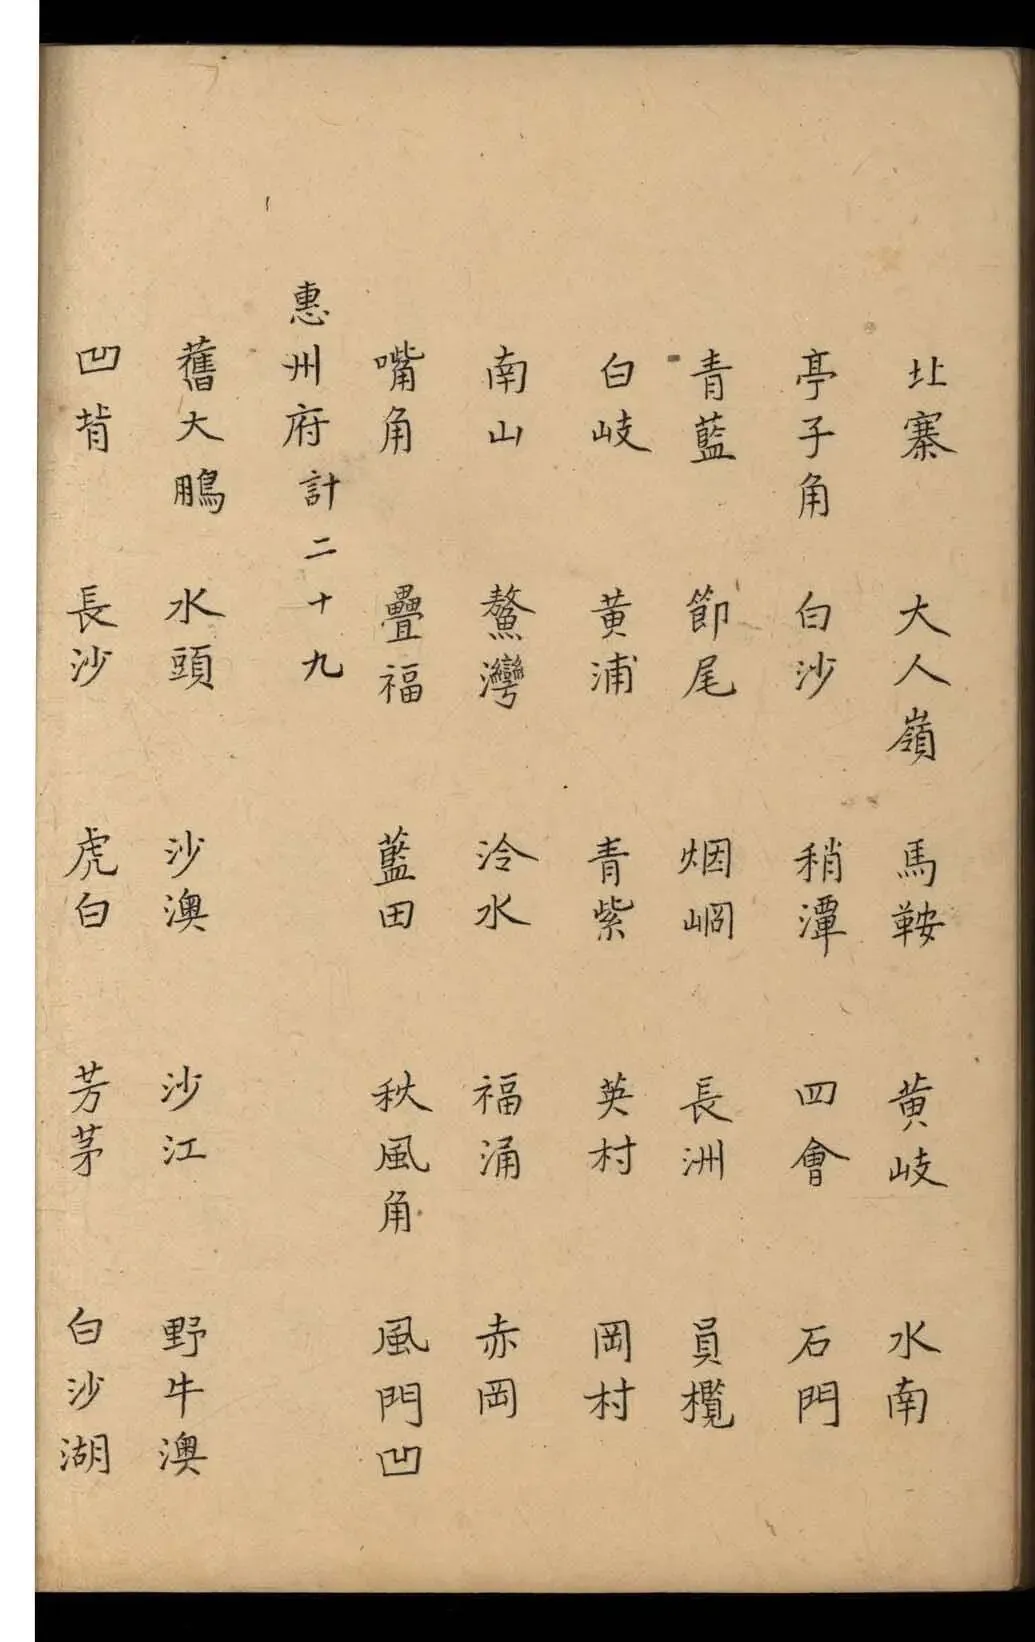 北寨 大人嶺 馬鞍 黄岐 水南
亭子角 白沙 稍潭 四會 石門
青藍 節尾 烟㟠 長洲 員欖
白岐 黄浦 青紫 英村 岡村
南山 鰲灣 泠水 福涌 赤岡
嘴角 疊福 藍田 秋風角 風門凹
惠州府計二十九
舊大鵬 水頭 沙澳 沙江 野牛澳
凹背 長沙 虎白 芳茅 白沙湖